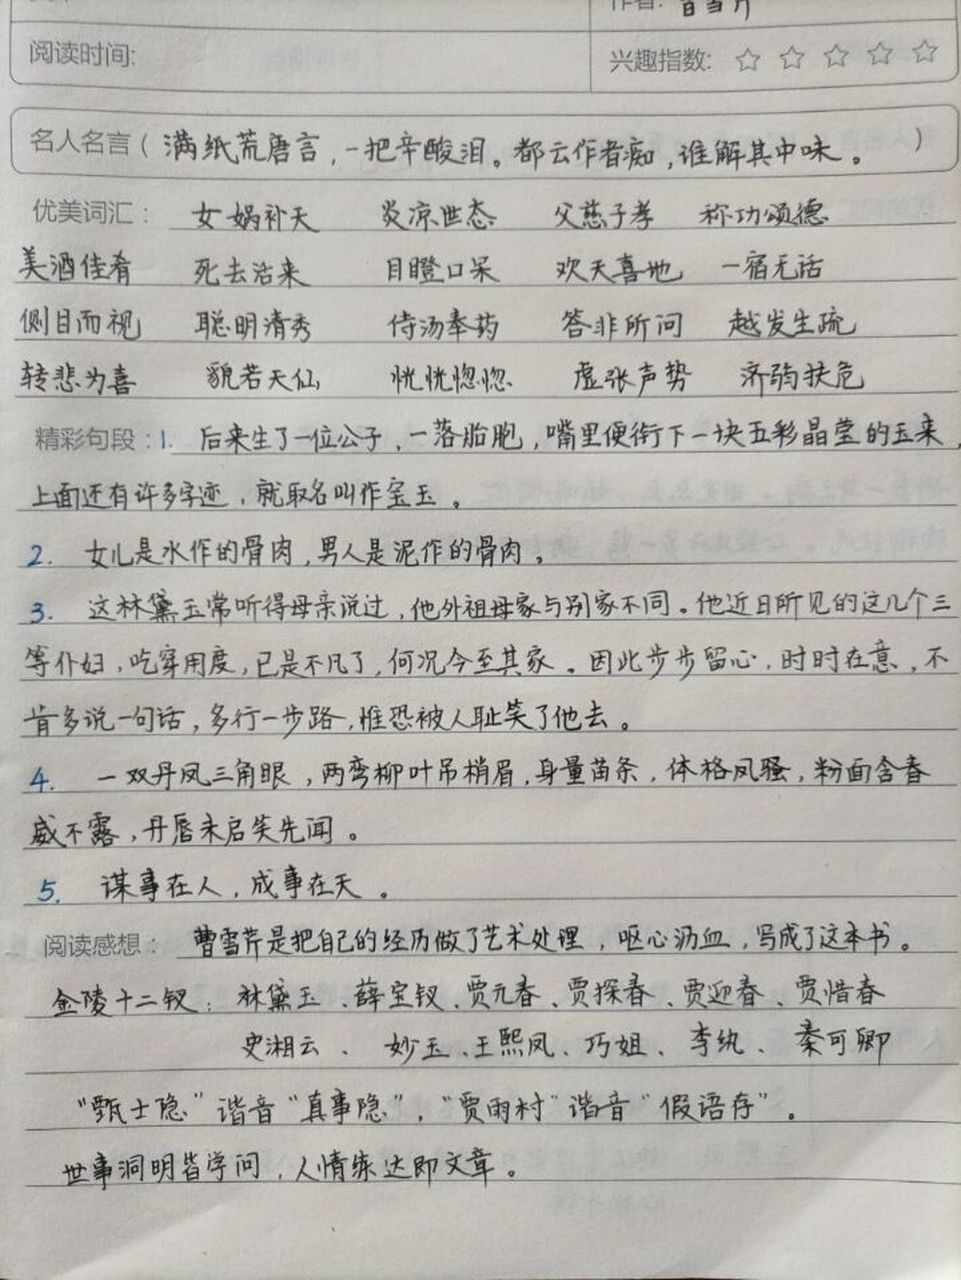 作者: 曹雪芹
阅读时间:
兴趣指数: ☆ ☆ ☆ ☆ ☆
名人名言（满纸荒唐言，一把辛酸泪。都云作者痴，谁解其中味。）
优美词汇： 女娲补天 炎凉世态 父慈子孝 称功颂德
美酒佳肴 死去活来 目瞪口呆 欢天喜地 一宿无话
侧目而视 聪明清秀 侍汤奉药 答非所问 越发生疏
转悲为喜 貌若天仙 恍恍惚惚 虚张声势 济弱扶危
精彩句段：1. 后来生了一位公子，一落胎胞，嘴里便衔下一块五彩晶莹的玉来，
上面还有许多字迹，就取名叫作宝玉。
2. 女儿是水作的骨肉，男人是泥作的骨肉。
3. 这林黛玉常听得母亲说过，他外祖母家与别家不同。他近日所见的这几个三
等仆妇，吃穿用度，已是不凡了，何况今至其家。因此步步留心，时时在意，不
肯多说一句话，多行一步路，惟恐被人耻笑了他去。
4. 一双丹凤三角眼，两弯柳叶吊梢眉，身量苗条，体格风骚，粉面含春
威不露，丹唇未启笑先闻。
5. 谋事在人，成事在天。
阅读感想： 曹雪芹是把自己的经历做了艺术处理，呕心沥血，写成了这本书。
金陵十二钗：林黛玉、薛宝钗、贾元春、贾探春、贾迎春、贾惜春
史湘云、妙玉、王熙凤、巧姐、李纨、秦可卿
“甄士隐”谐音“真事隐”，“贾雨村”谐音“假语存”。
世事洞明皆学问，人情练达即文章。